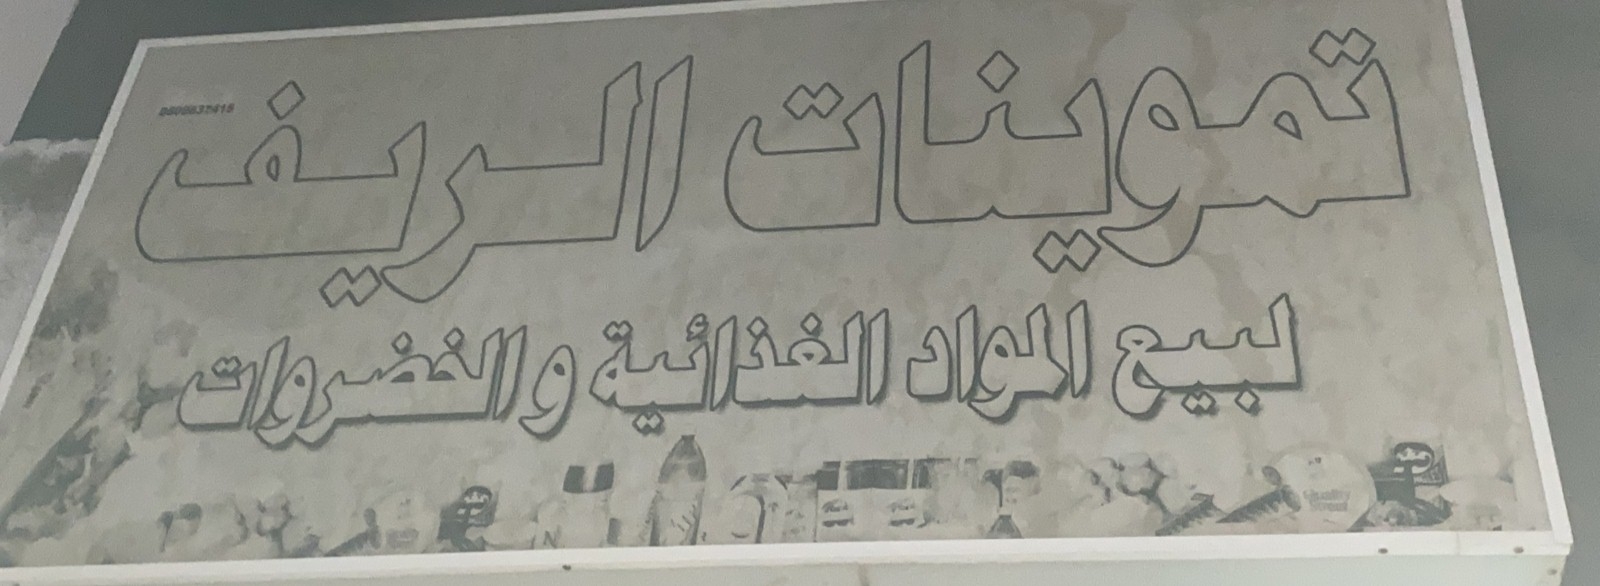 تموينات الريف
لبيع المواد الغذائية والخضروات